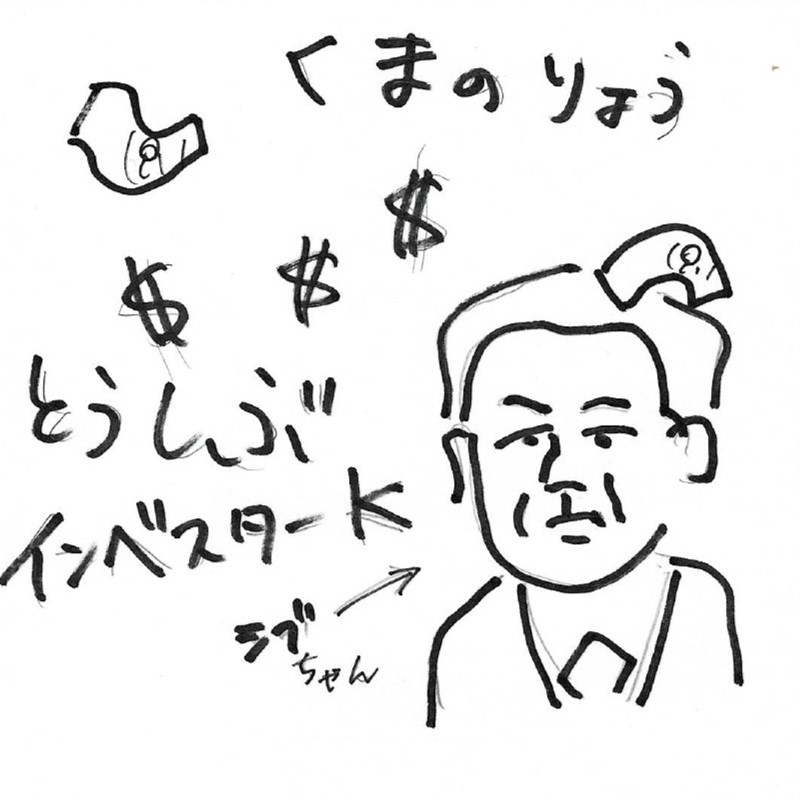 くまのりょう
$ $ $
とうしぶ
インベスターK
シブ
ちゃん